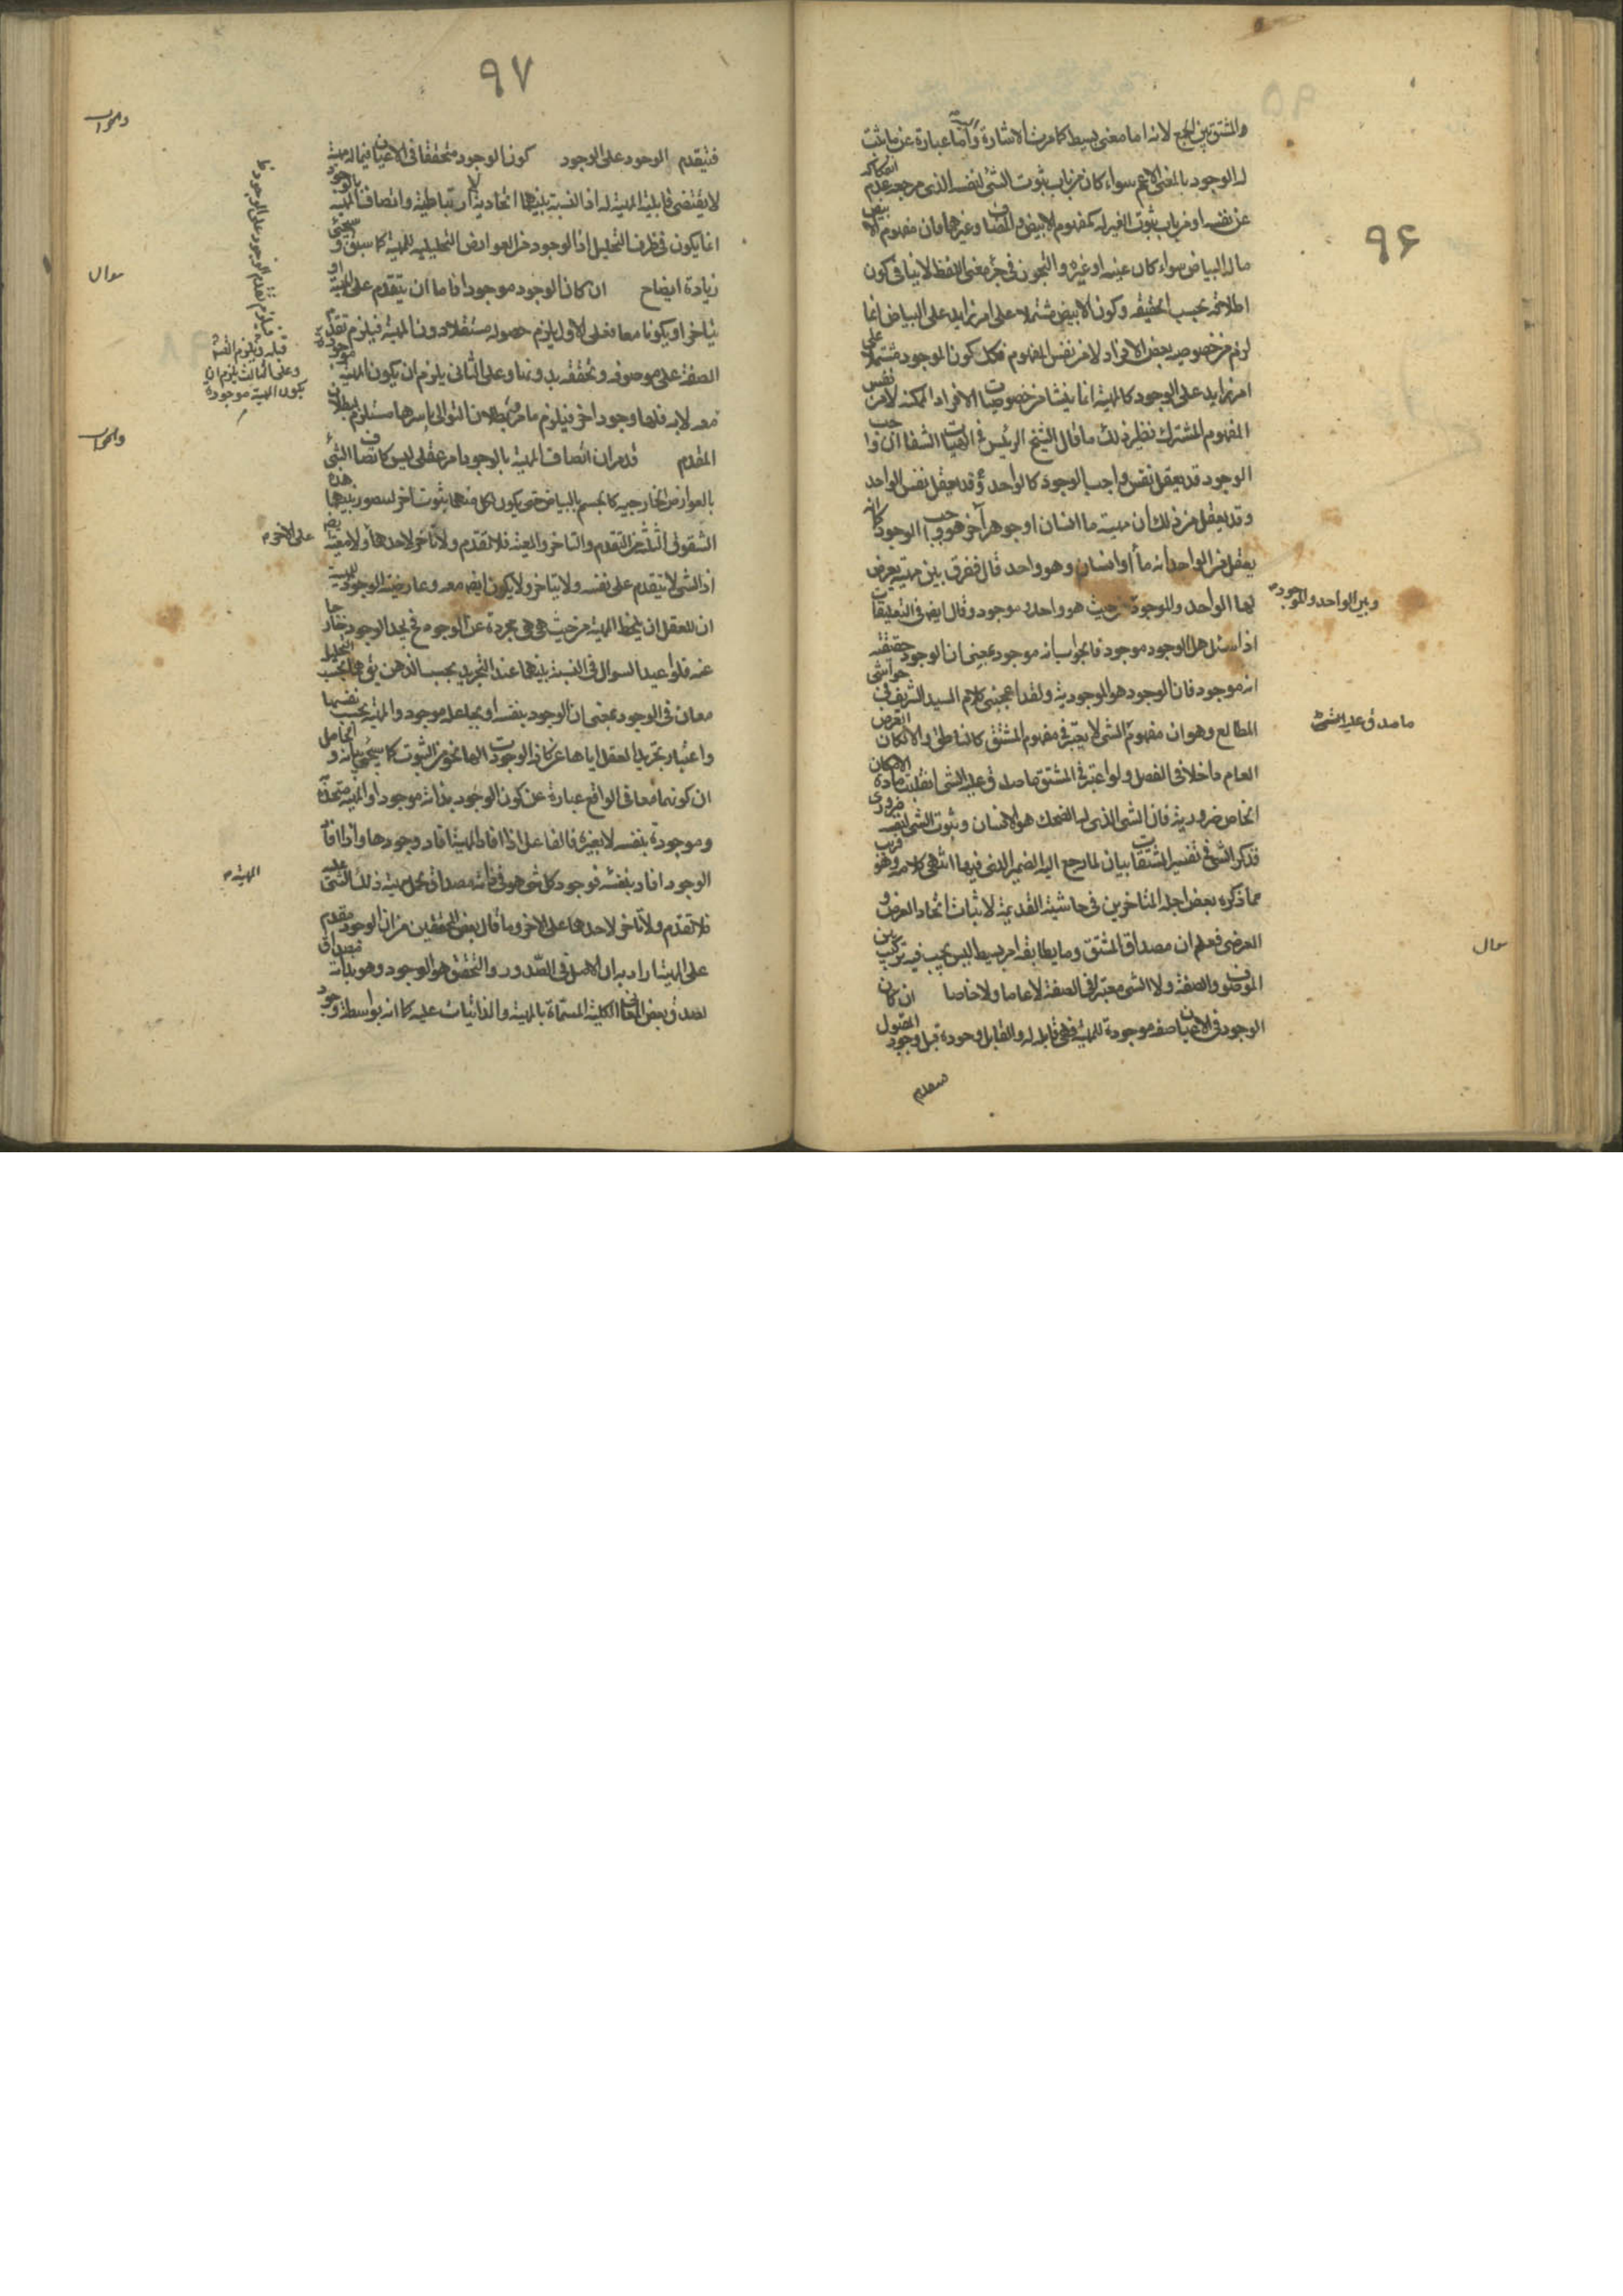 ٩۶
والمشتق بين الجمع لانه اما معنى بسيط كما مرت الاشارة واما عبارة عن ما ثبت
له الوجود بالمعنى الاعم سواء كان من باب ثبوت الشئ لنفسه الذى مرجعه عدم انفكاكه
عن نفسه او من باب ثبوت الغير له كمفهوم الابيض و المضاف وغيرهما فان مفهوم الابيض
ماله البياض سواء كان عينه او غيره والتجوز فى جزء معنى اللفظ لا ينافى كون
اطلاقه بحسب الحقيقه وكون الابيض مشتملا على امر زايد على البياض انما
لزم من خصوصيه بعض الافراد لا من نفس المفهوم فكك كون الموجود مشتملا على
امر زايد على الوجود كالمهية انما ينشا من خصوصيات الافراد الممكنه لا من نفس
المفهوم المشترك نظير ذلك ما قال الشيخ الرئيس فى الهيات الشفا ان واجب
الوجود قد يعقل نفس واجب الوجود كالواحد قد يعقل نفس الواحد
وقد يعقل من ذلك ان مهية ما انسان او جوهر آخر هو واجب الوجود كما انه
يعقل من الواحد انه ماء او انسان وهو واحد قال ففرق بين مهية يعرض
لها الواحد والموجود من حيث هو واحد و موجود وقال ايض فى التعليقات
وبين الواحد والموجود
اذا سئل هل الوجود موجود فالجواب انه موجود بمعنى ان الوجود حقيقته
انه موجود فان الوجود هو الموجودية ولقد اعجبنى كلام السيد الشريف فى حواشى
المطالع وهو ان مفهوم الشئ لا يعتبر فى مفهوم المشتق كالناطق والا لكان العرض
ما صدق عليه الشئ
العام داخلا فى الفصل ولو اعتبر فى المشتق ما صدق عليه الشئ انقلبت مادة الامكان
الخاص ضرورية فان الشئ الذى له الضحك هو الانسان وثبوت الشئ لنفسه ضرورى
فذكر الشئ فى تفسير المشتقات بيان لما رجع اليه الضمير الذى فيها انتهى كلامه وهو قريب
مما ذكره بعض اجلة المتاخرين فى حاشيته القديمة لاثبات اتحاد العرض و
العرضى فعلم ان مصداق المشتق وما يطابقه امر بسيط ليس يجب فيه تركيب بين
سوال
الموصوف والصفة ولا الشئ معتبر فى الصفة لا عاما ولا خاصا ان كان
الوجود فى الاعيان صفة موجودة للمهية فهى قابله له والقابل وجوده قبل وجود المقبول
فيتقدم
٩٧
والجواب
فيتقدم الوجود على الوجود كون الوجود متحققا فى الاعيان فيما له مهية
لا يقتضى قابلية المهية له اذ النسبة بينهما اتحادية لا ارتباطية واتصاف المهية بالوجود
انما يكون فى ظرف التحليل اذ الوجود من العوارض التحليليه للمهية كما سبق و سيجئ
سوال
زيادة ايضاح ان كان الوجود موجودا فاما ان يتقدم على المهية او
يتاخر او يكونا معا فعلى الاول يلزم حصوله مستقلا دون المهية فيلزم تقدم
الصفة على موصوفه وتحققه بدونها وعلى الثانى يلزم ان يكون المهية موجودة
فيلزم تقدم الوجود على الوجود
قبله ويلزم التسلسل وعلى الثالث يلزم ان يكون المهية موجودة
معه لا به فلها وجود اخر فيلزم ما مر وبطلان التوالى باسرها مستلزم لبطلان
والجواب
المقدم قد مر ان اتصاف المهية بالوجود امر عقلى ليس كاتصاف الشئ
بالعوارض الخارجيه كالجسم بالبياض حتى يكون لكل منهما ثبوت اخر ليتصور بينهما هذه
الشقوق الثلثة من التقدم والتاخر والمعية فلا تقدم ولا تاخر لاحدهما ولا معية ايض
على الاخر
اذ الشئ لا يتقدم على نفسه ولا يتاخر ولا يكون ايض معه وعارضية الوجود للمهية
ان للعقل ان يلحظ المهية من حيث هى هى مجردة عن الوجود فح يجد الوجود خارجا
عنه فلو اعيد السوال فى النسبة بينهما عند التجريد بحسب الذهن يق هما بحسب التحليل
معان فى الوجود بمعنى ان الوجود بنفسه او بجاعله موجود والمهية بحسب نفسها
واعتبار تجريد العقل اياها عن كافة الوجودات لها نحو من الثبوت كما سيجئ بيانه و الحاصل
ان كونهما معا فى الواقع عبارة عن كون الوجود بذاته موجودا والمهية متحدة
وموجودة بنفسه لا بغيره فالفاعل اذا افاد المهية افاد وجودها واذا افاد
الوجود افاد بنفسه فوجود كل شئ هو فى ذاته مصداق لحمل مهية ذلك الشئ عليه
المهية
فلا تقدم ولا تاخر لاحدهما على الاخر وما قال بعض المحققين من ان الوجود مقدم
على المهية اراد به ان الاصل فى الصدور والتحقق هو الوجود وهو بذاته مصداق
لصدق بعض المعانى الكلية المسماة بالمهية والذاتيات عليه كما انه بواسطة وجود